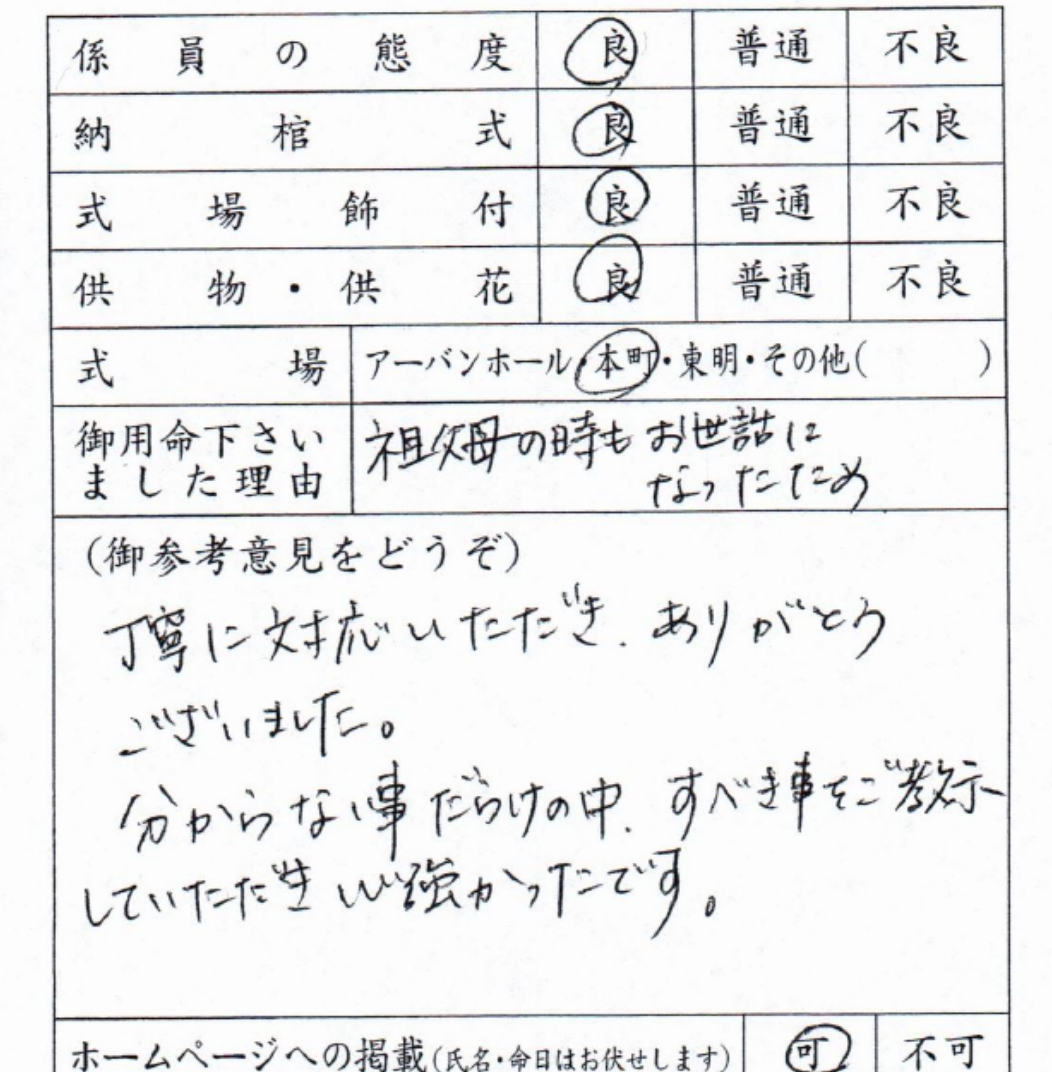 係員の態度 良 普通 不良
納棺式 良 普通 不良
式場飾付 良 普通 不良
供物・供花 良 普通 不良
式場 アーバンホール・本町・東明・その他( )
御用命下さい
ました理由
祖父母の時もお世話に
なったため
(御参考意見をどうぞ)
丁寧に対応いただき、ありがとう
ございました。
分からない事だらけの中、すべき事をご教示
していただき心強かったです。
ホームページへの掲載(氏名・命日はお伏せします) 可 不可